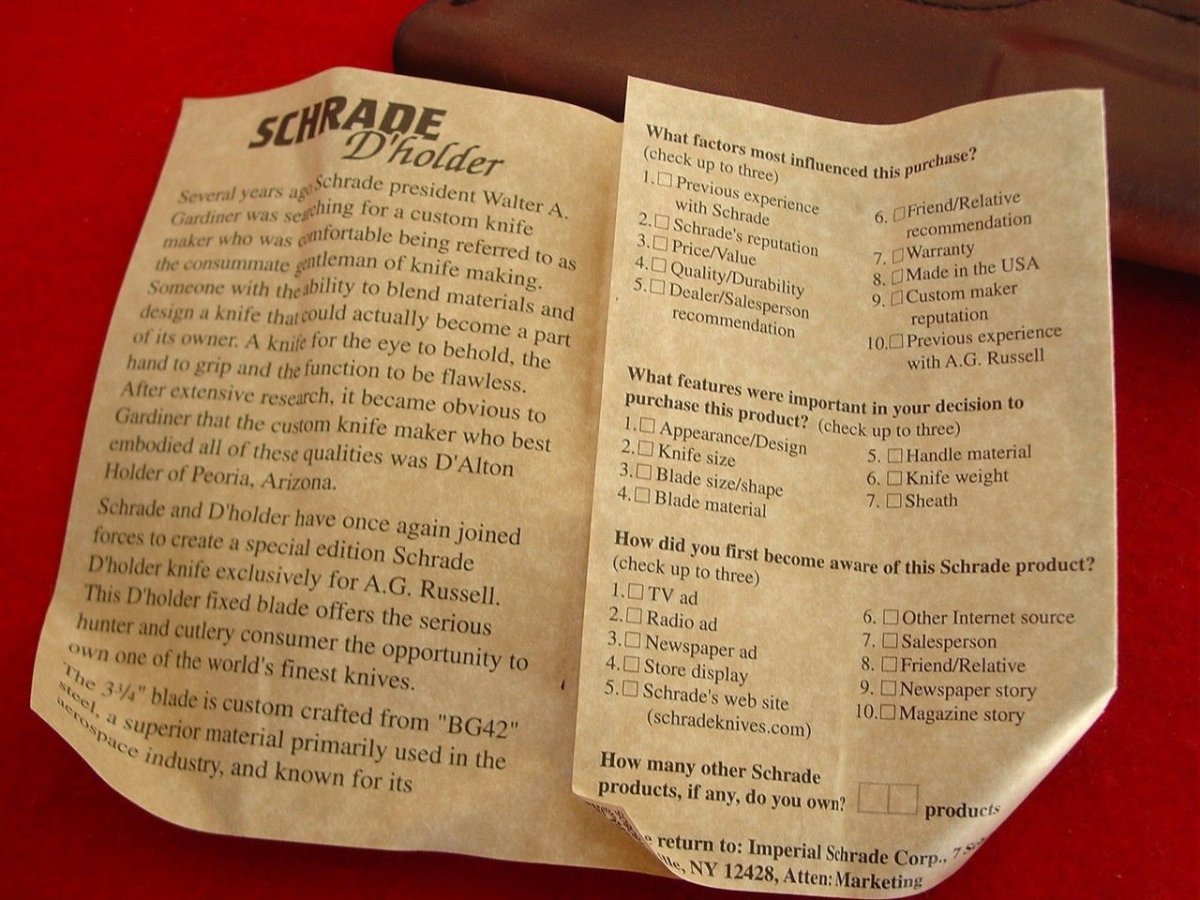 SCHRADE
D'holder
Several years ago Schrade president Walter A.
Gardiner was searching for a custom knife
maker who was comfortable being referred to as
the consummate gentleman of knife making.
Someone with the ability to blend materials and
design a knife that could actually become a part
of its owner. A knife for the eye to behold, the
hand to grip and the function to be flawless.
After extensive research, it became obvious to
Gardiner that the custom knife maker who best
embodied all of these qualities was D'Alton
Holder of Peoria, Arizona.
Schrade and D'holder have once again joined
forces to create a special edition Schrade
D'holder knife exclusively for A.G. Russell.
This D'holder fixed blade offers the serious
hunter and cutlery consumer the opportunity to
own one of the world's finest knives.
The 3¾" blade is custom crafted from "BG42"
steel, a superior material primarily used in the
aerospace industry, and known for its
What factors most influenced this purchase?
(check up to three)
1. ☐ Previous experience
with Schrade
2. ☐ Schrade's reputation
3. ☐ Price/Value
4. ☐ Quality/Durability
5. ☐ Dealer/Salesperson
recommendation
6. ☐ Friend/Relative
recommendation
7. ☐ Warranty
8. ☐ Made in the USA
9. ☐ Custom maker
reputation
10. ☐ Previous experience
with A.G. Russell
What features were important in your decision to
purchase this product? (check up to three)
1. ☐ Appearance/Design
2. ☐ Knife size
3. ☐ Blade size/shape
4. ☐ Blade material
5. ☐ Handle material
6. ☐ Knife weight
7. ☐ Sheath
How did you first become aware of this Schrade product?
(check up to three)
1. ☐ TV ad
2. ☐ Radio ad
3. ☐ Newspaper ad
4. ☐ Store display
5. ☐ Schrade's web site
(schradeknives.com)
6. ☐ Other Internet source
7. ☐ Salesperson
8. ☐ Friend/Relative
9. ☐ Newspaper story
10. ☐ Magazine story
How many other Schrade
products, if any, do you own? ☐☐ products
return to: Imperial Schrade Corp., 7
NY 12428, Atten: Marketing